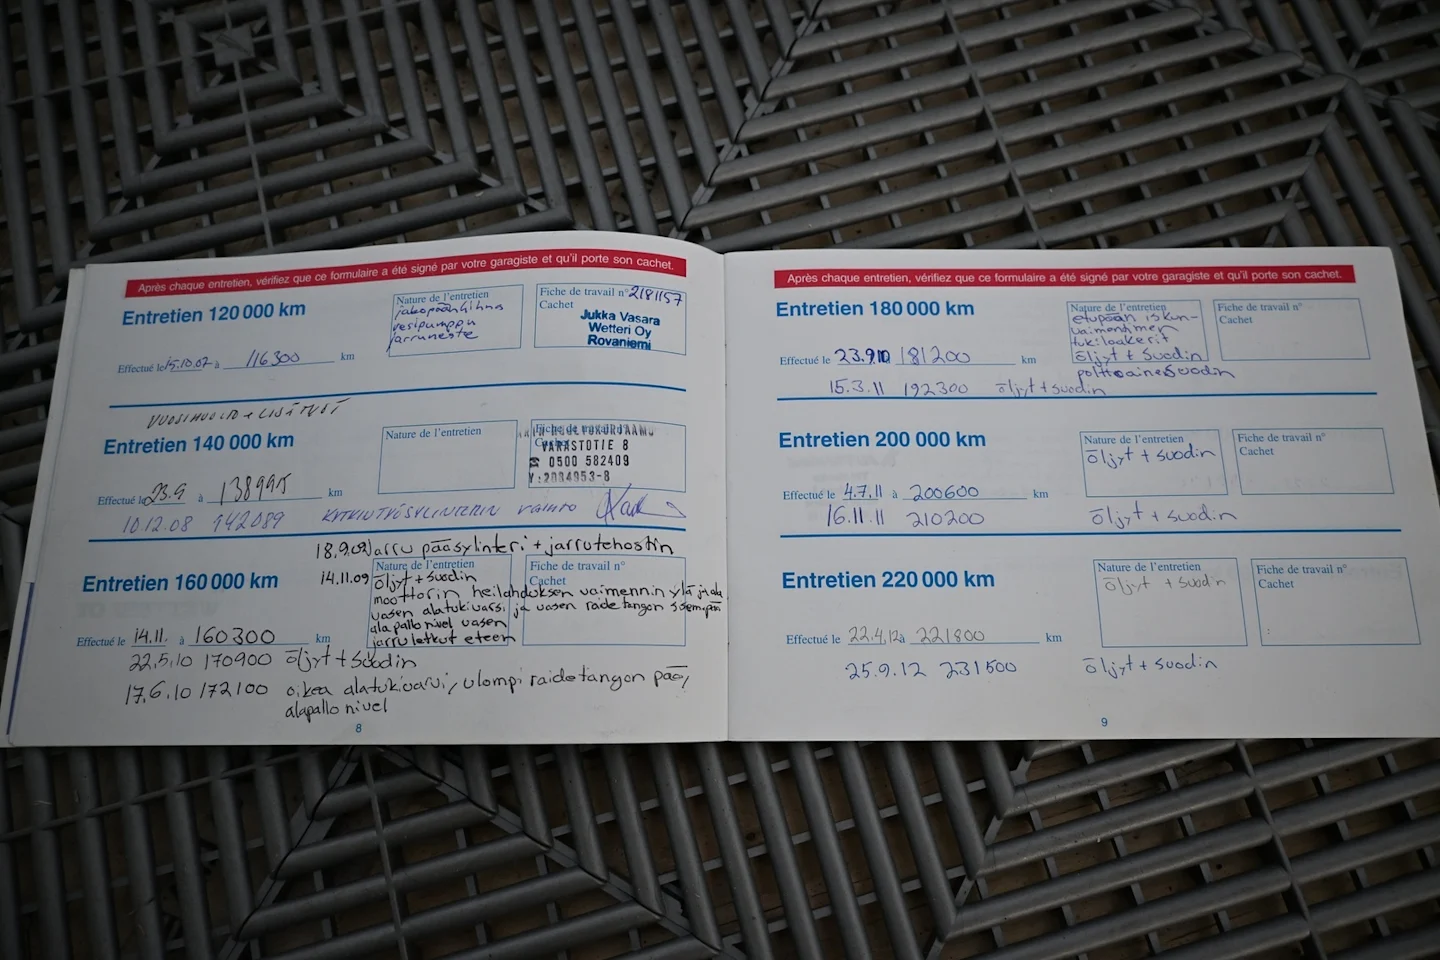 Après chaque entretien, vérifiez que ce formulaire a été signé par votre garagiste et qu'il porte son cachet.
Entretien 120 000 km
Nature de l'entretien
jakopäänhihna
vesipumppu
jarruneste
Fiche de travail n° 2181157
Cachet
Jukka Vasara
Wetteri Oy
Rovaniemi
Effectué le 15.10.07 à 116300 km
VUOSIHUOLTO + LISÄTYÖT
Entretien 140 000 km
Nature de l'entretien
Fiche de travail n°
Cachet
VARASTOTIE 8
☎ 0500 582409
Y:2084953-8
Effectué le 23.9 à 138995 km
10.12.08 142089 KYTKINTYÖSYLINTERIN VAIHTO
18.9.09 Jarru pääsylinteri + jarrutehostin
Entretien 160 000 km
Nature de l'entretien
Fiche de travail n°
Cachet
14.11.09 öljyt + suodin
moottorin heilahduksen vaimennin ylä ja ala
vasen alatukivarsi ja vasen raidetangon
alapallo nivel vasen
jarruletkut eteen
Effectué le 14.11. à 160300 km
22.5.10 170900 öljyt + suodin
17.6.10 172100 oikea alatukivarsi, ulompi raidetangon pää,
alapallo nivel
8
Après chaque entretien, vérifiez que ce formulaire a été signé par votre garagiste et qu'il porte son cachet.
Entretien 180 000 km
Nature de l'entretien
etupään iskun-
vaimentimen
tukilaakerit
öljyt + suodin
polttoainesuodin
Fiche de travail n°
Cachet
Effectué le 23.9.10 181200 km
15.3.11 192300 öljyt + suodin
Entretien 200 000 km
Nature de l'entretien
öljyt + suodin
Fiche de travail n°
Cachet
Effectué le 4.7.11 à 200600 km
16.11.11 210200 öljyt + suodin
Entretien 220 000 km
Nature de l'entretien
öljyt + suodin
Fiche de travail n°
Cachet
Effectué le 22.4.12 à 221800 km
25.9.12 231500 öljyt + suodin
9